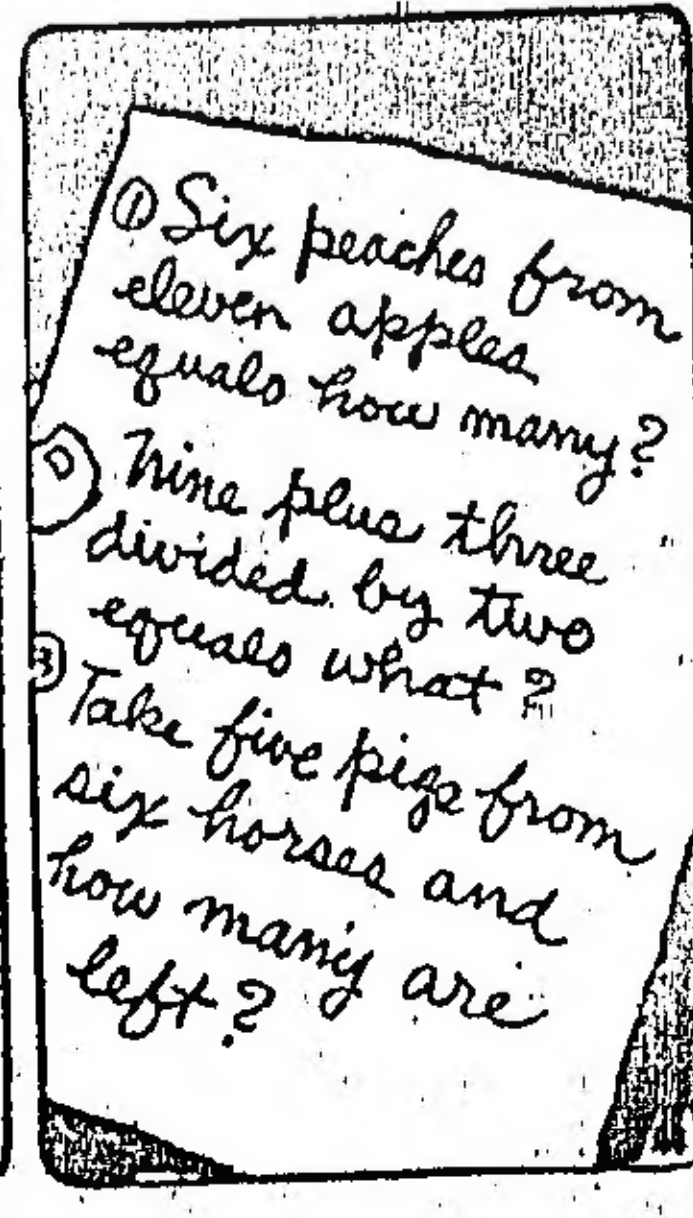 ① Six peaches from
eleven apples
equals how many?
Nine plus three
divided by two
equals what?
③ Take five pigs from
six horses and
how many are
left?